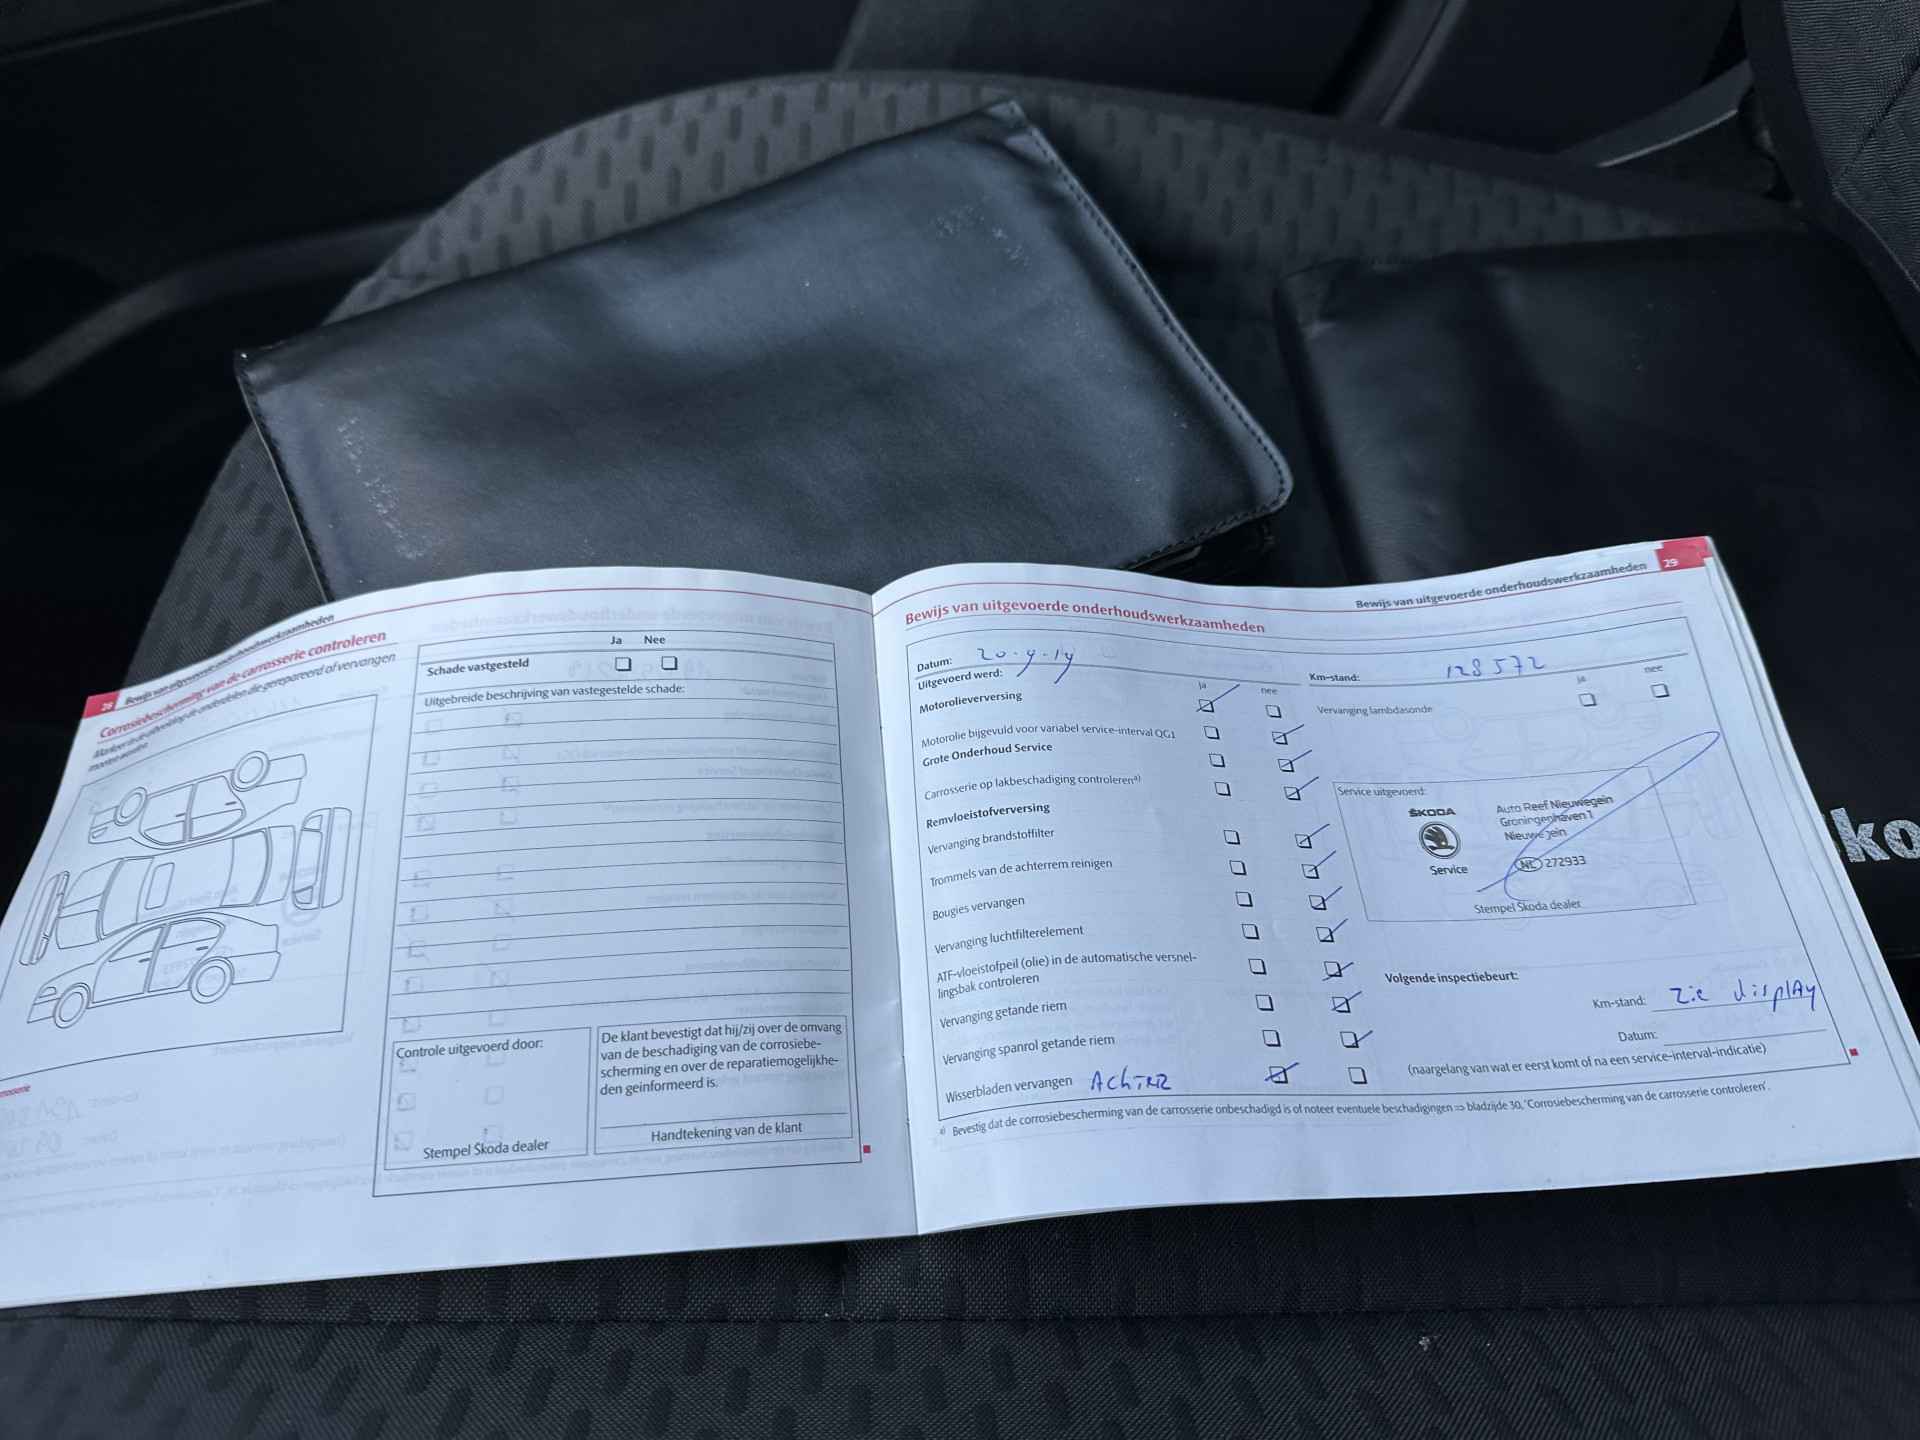 28 Bewijs van uitgevoerde onderhoudswerkzaamheden
Corrosiebescherming van de carrosserie controleren
Markeer in de afbeelding de onderdelen die gerepareerd of vervangen
moeten worden
Ja Nee
Schade vastgesteld
Uitgebreide beschrijving van vastegestelde schade:
Controle uitgevoerd door:
Stempel Škoda dealer
De klant bevestigt dat hij/zij over de omvang
van de beschadiging van de corrosiebe-
scherming en over de reparatiemogelijkhe-
den geinformeerd is.
Handtekening van de klant
Bewijs van uitgevoerde onderhoudswerkzaamheden 29
Bewijs van uitgevoerde onderhoudswerkzaamheden
Datum:
Km-stand: 128 572
Uitgevoerd werd:
ja nee
ja nee
Motorolieverversing
Vervanging lambdasonde
Motorolie bijgevuld voor variabel service-interval QG1
Grote Onderhoud Service
Carrosserie op lakbeschadiging controleren a)
Remvloeistofverversing
Vervanging brandstoffilter
Trommels van de achterrem reinigen
Bougies vervangen
Vervanging luchtfilterelement
ATF-vloeistofpeil (olie) in de automatische versnel-
lingsbak controleren
Vervanging getande riem
Vervanging spanrol getande riem
Wisserbladen vervangen AchTER
Service uitgevoerd:
ŠKODA
Service
Auto Reef Nieuwegein
Groningenhaven 1
Nieuwegein
NL 272933
Stempel Škoda dealer
Volgende inspectiebeurt:
Km-stand: zie display
Datum:
(naargelang van wat er eerst komt of na een service-interval-indicatie)
a) Bevestig dat de corrosiebescherming van de carrosserie onbeschadigd is of noteer eventuele beschadigingen ⇒ bladzijde 30, 'Corrosiebescherming van de carrosserie controleren'.
ko